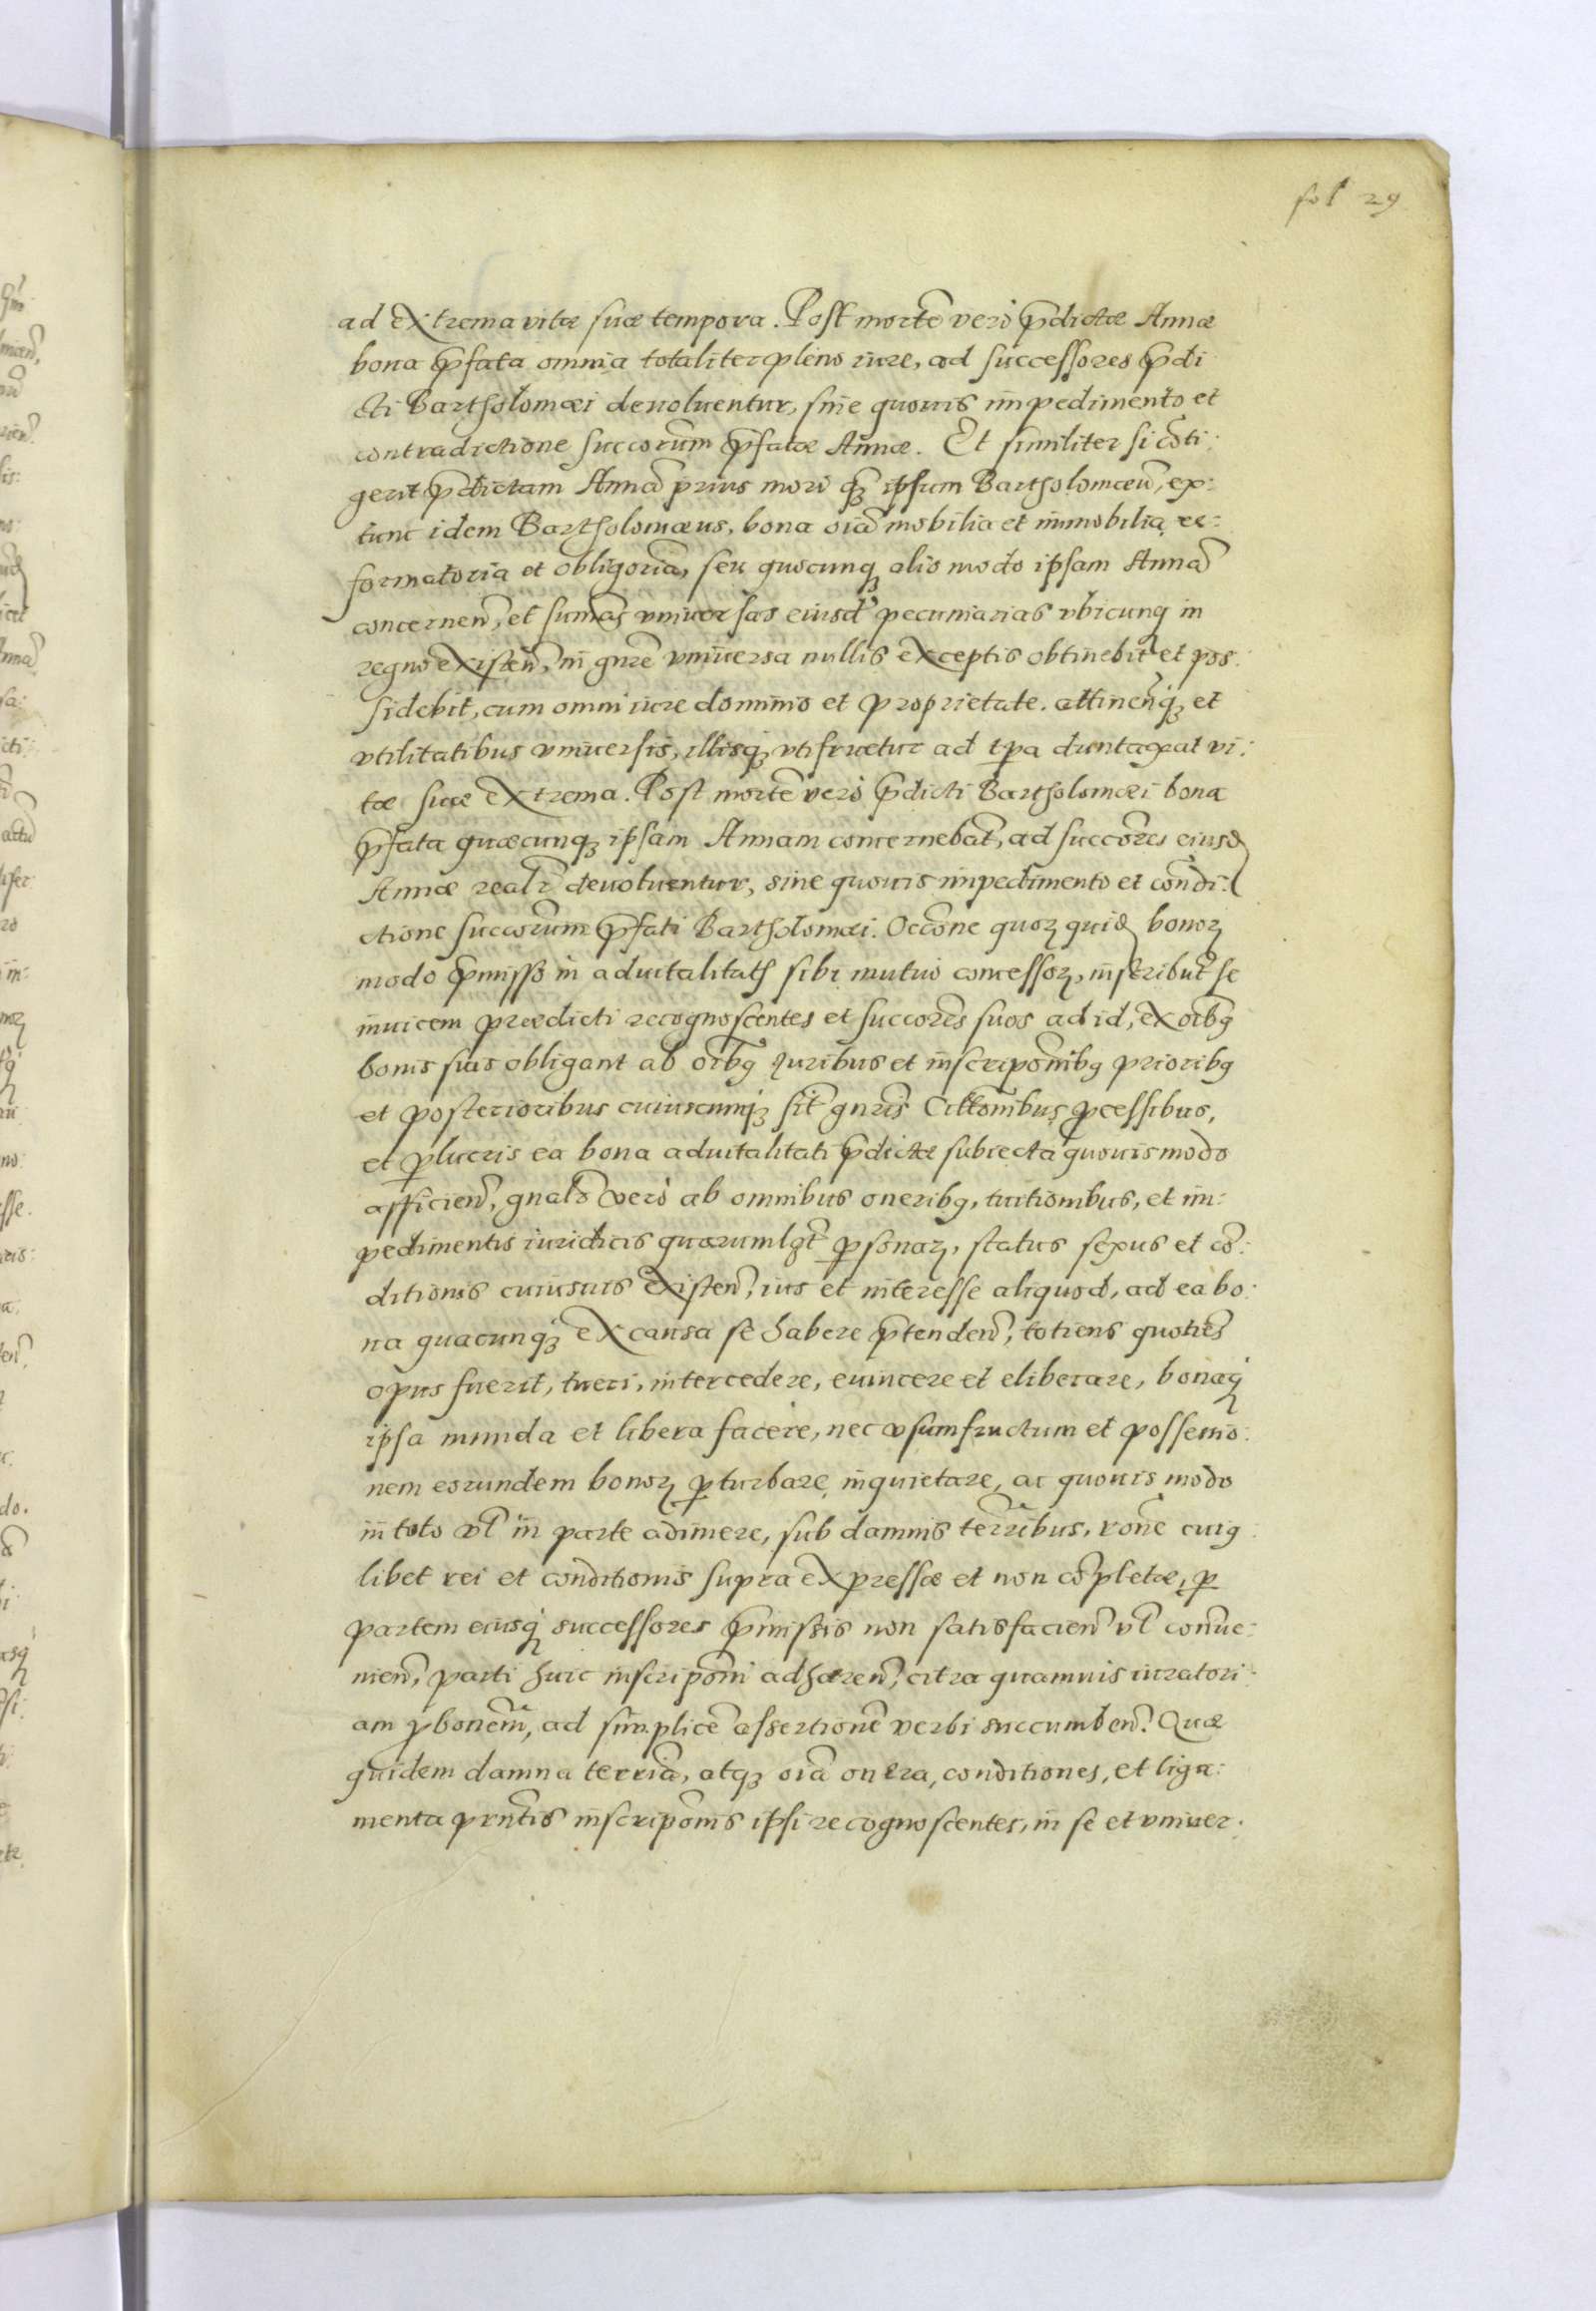 fol 29
ad extrema vitæ suæ tempora. Post mortẽ verò p̃dictæ Annæ
bona p̃fata omnia totaliter pleno iure, ad successores p̃di
cti Bartholomæi deuoluentur, sine quouis impedimento et
contradictione succorum p̃fatæ Annæ. Et similiter si cõti:
gerit p̃dictam Annã prius mori q̃ꝫ ipsum Bartholomæũ, ex:
tunc idem Bartholomæus, bona oĩa mobilia et immobilia, re:
formatoria et obligoria, seu quocunqꝫ alio modo ipsam Annã
concerneñ, et sumãs vniuersas eiusd̃ pecuniarias vbicunqꝫ in
regno existeñ, in gñre vniuersa nullis exceptis obtinebit et pos:
sidebit, cum omni iure dominio et proprietate. attineñqꝫ et
vtilitatibus vniuersis, illisqꝫ vtifruetur ad tp̃a duntaxat vi:
tæ suæ extrema. Post mortẽ verò p̃dicti Bartholomæi bona
p̃fata quæcunqꝫ ipsam Annam concernebãt, ad succores eiusd̃
Annæ realr̃ deuoluentur, sine quouis impedimento et cõndi:
ctione succorum p̃fati Bartholomæi. Occõne quoꝝ quid̃ bonoꝝ
modo p̃misso in aduitalitatẽ sibi mutuò concessoꝝ, inscribũt se
inuicem prædicti recognoscentes et succores suos ad id, ex oĩbꝫ
bonis suis obligant ab oĩbꝫ iuribus et inscripõnibꝫ prioribꝫ
et posterioribus cuiuscunqꝫ sĩt gñris Cittõnibus ꝓcessibus,
et ꝑlucris ea bona aduitalitati p̃dictæ subiecta quouis modo
afficieñ, gñalr̃ verò ab omnibus oneribꝫ, tuitionibus, et im:
pedimentis iuridicis quarumlibet ꝑsonaꝝ, status sexus et cõ:
ditionis cuiusuis existeñ, ius et interesse aliquod, ad ea bo:
na quacunqꝫ ex causa se habere p̃tendeñ, totiens quotiẽs
opus fuerit, tueri, intercedere, euincere et eliberare, bonaqꝫ
ipsa munda et libera facere, nec vsumfructum et possessio:
nem eorundem bonoꝝ ꝑturbare, inquietare, ac quouis modo
in toto vl̃ in parte adimere, sub damnis terr̃ibus, rõne cuiꝫ
libet rei et conditionis supra expressæ et non cõpletæ, ꝑ
partem eiusqꝫ successores p̃missis non satisfacieñ vl̃ conue:
nieñ, parti huic inscripõni adhæreñ, citra quamuis iuratori:
am ꝓbonem̃, ad simplicẽ assertionẽ verbi succumbeñ. Quæ
quidem damna terria, atqꝫ oĩa onera, conditiones, et liga:
menta prñtis inscripõnis ipsi recognoscentes, in se et vniuer: